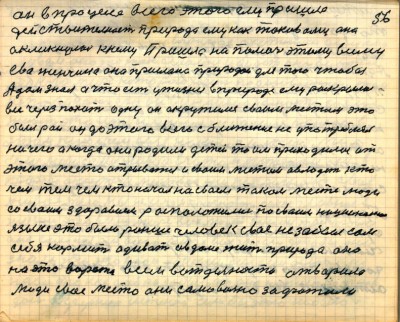 он в процене всего этого ему пришла 56
действительно природа ему как таковому она
окликнула к нему Пришла на помощ этому всему
ева женщина она прислана природой для того чтобы
Адам знал а что ему нужно в природе ему раскрыла
ее через похоть одну он окружился своим местом это
был рай он до этого всего с ближение не употреблял
ничего а когда они родили детей то им приходилось от
этого место отрываться и своим местом овладеть кто
чем тем чем кто начал на своем таком месте люди
со своим здоровием расположились по своим национ
языке это было раньше человек свое не забыл сам
себя кормить одивать и в доме жить природа она
на это ворота всем в отдельности отварила
люди свое место они самовольно захватили